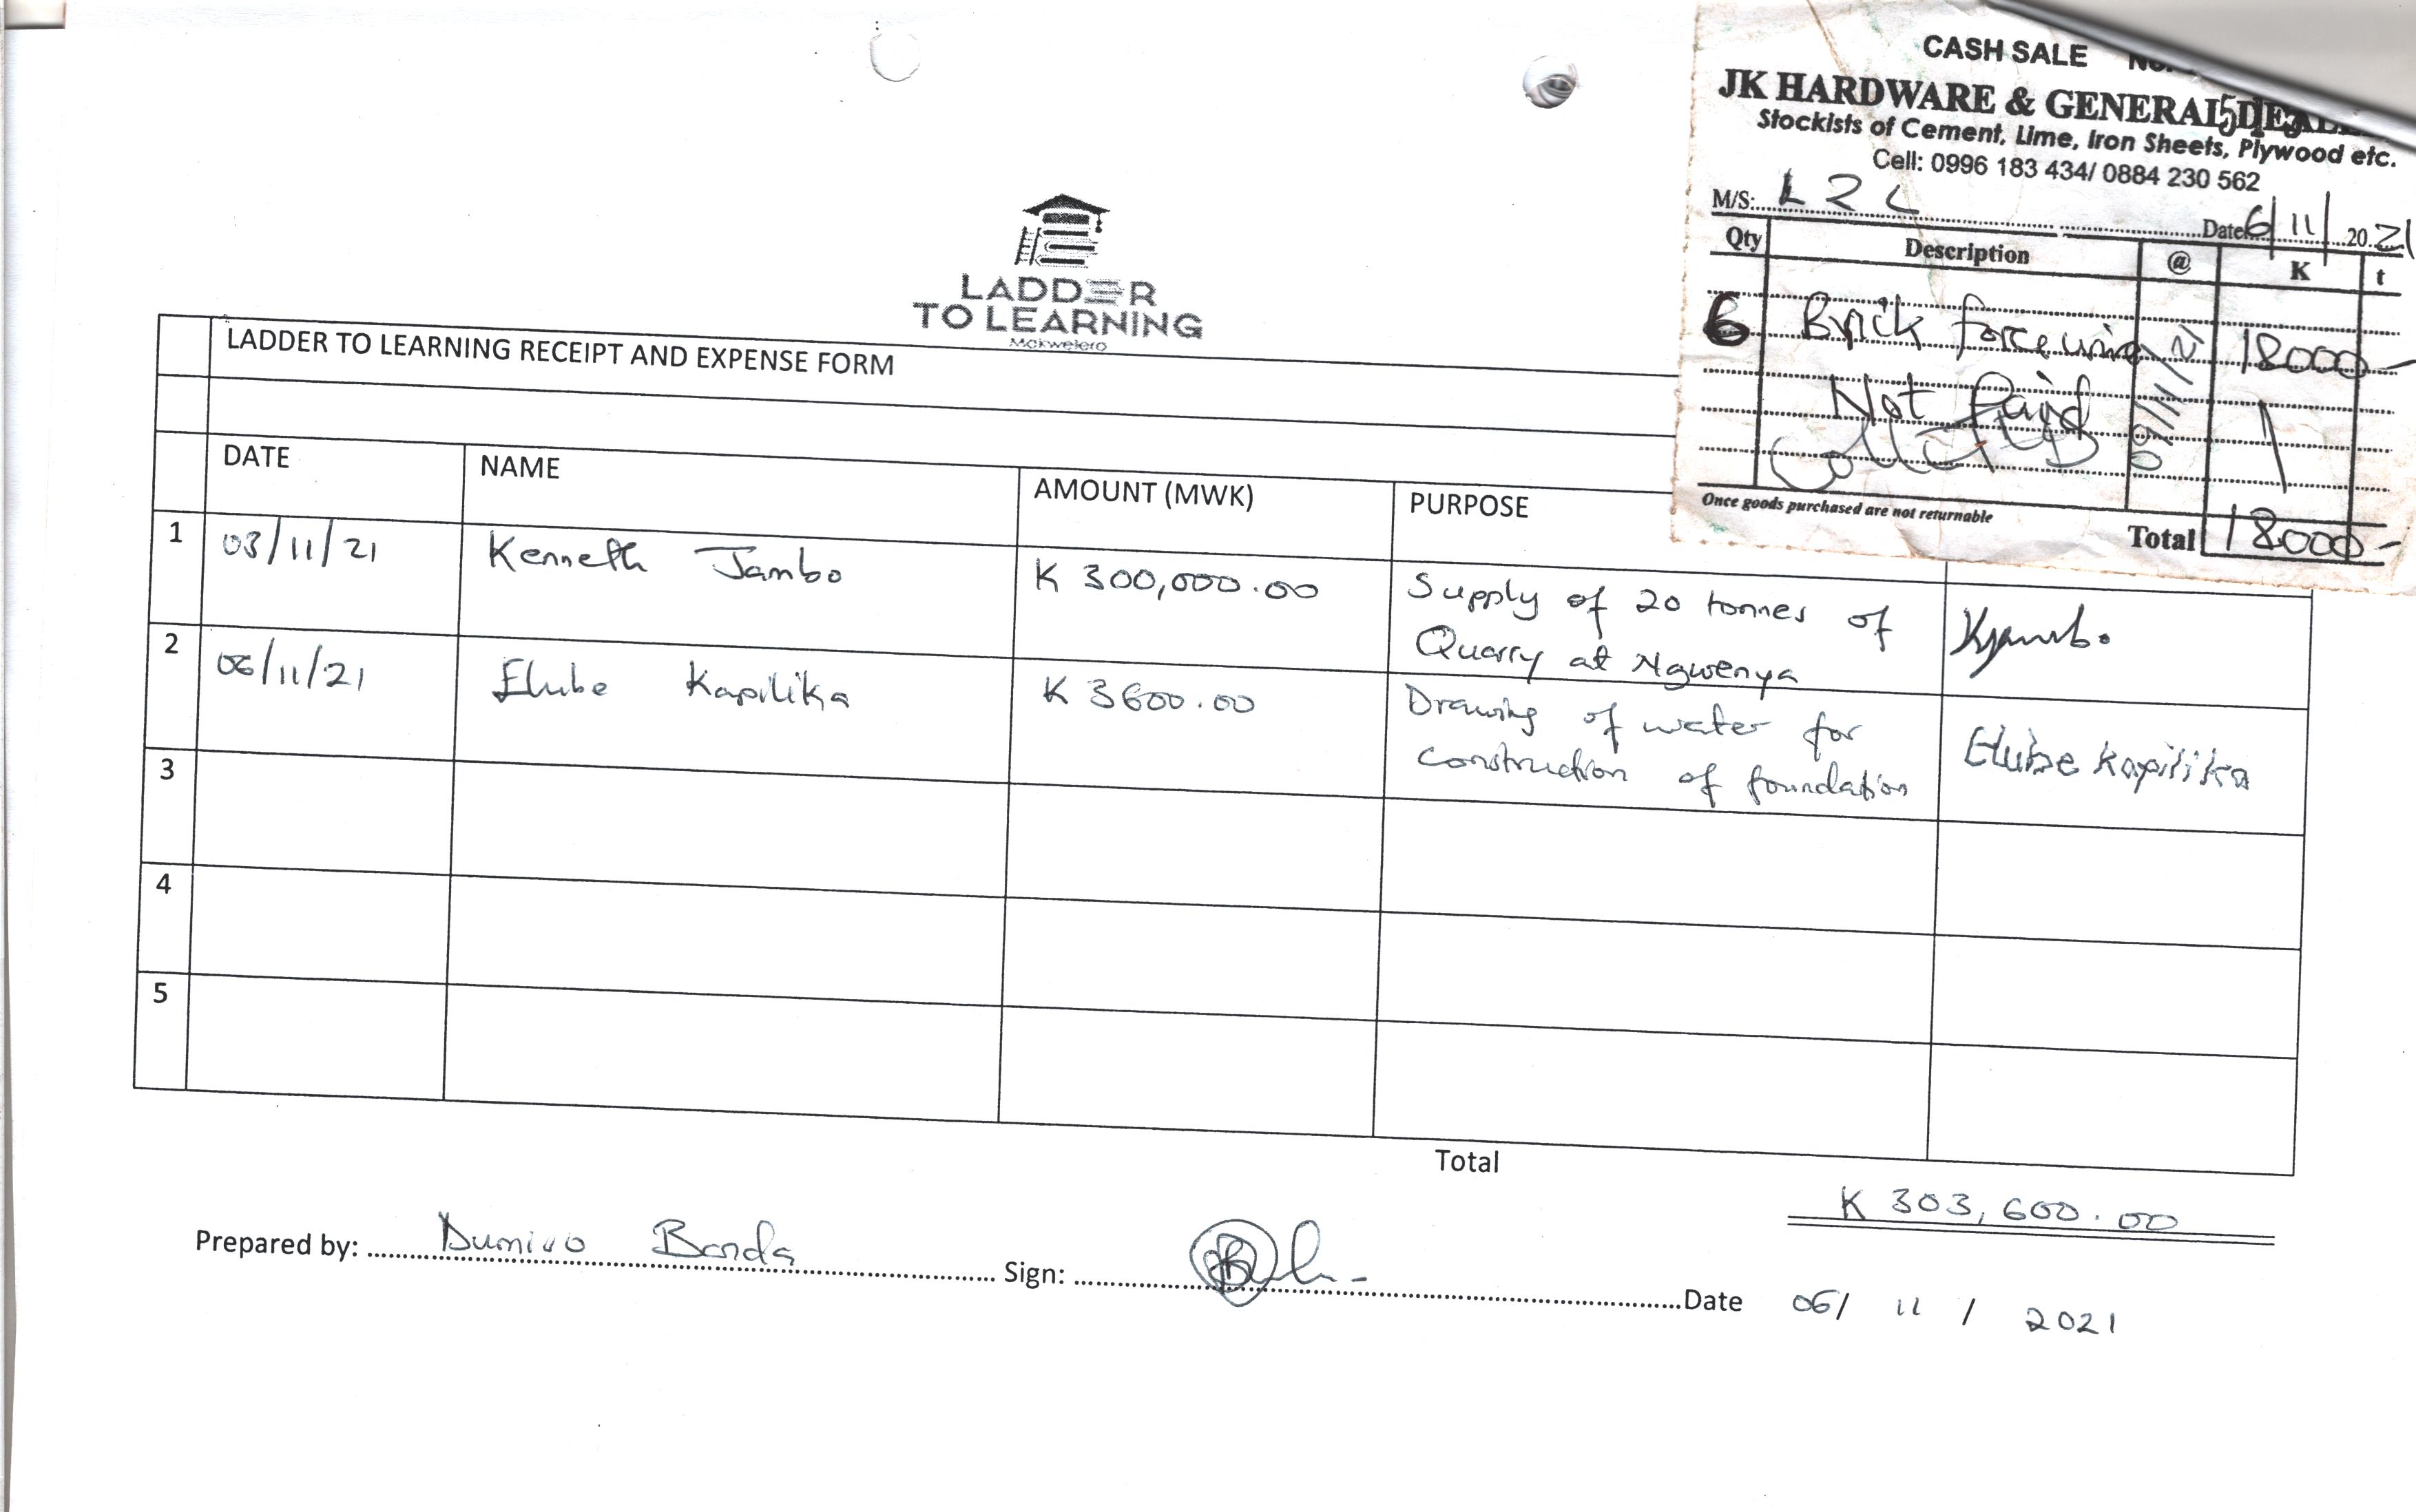 CASH SALE
JK HARDWARE & GENERAL
Stockists of Cement, Lime, Iron Sheets, Plywood etc.
Cell: 0996 183 434/ 0884 230 562
M/S: L2L Date 6/11/2021
Qty Description @ K t
6 Brick force wire 18000-
Not Paid
09/11/21
Once goods purchased are not returnable
Total 18000-
LADDER
TO LEARNING
Mokwelero
LADDER TO LEARNING RECEIPT AND EXPENSE FORM
DATE NAME AMOUNT (MWK) PURPOSE
1 03/11/21 Kenneth Jambo K 300,000.00 Supply of 20 tonnes of
Quarry at Ngwenya
KJambo.
2 06/11/21 Elube Kapilika K 3600.00 Drawing of water for
construction of foundation
Elube Kapilika
3
4
5
Total
K 303,600.00
Prepared by: Dumiso Banda Sign: Date 06/ 11 / 2021